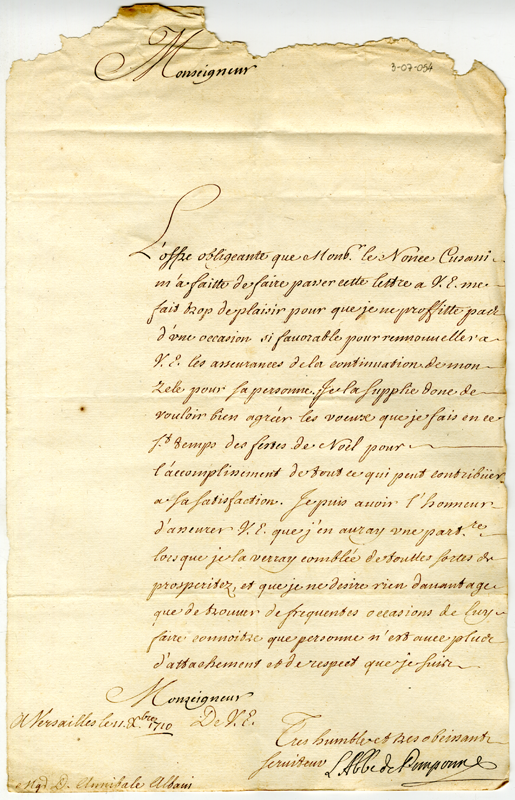 Monseigneur
3-07-054
L'offre obligeante que Monsr. le Nonce Cusani
m'a faitte de faire passer cette lettre a V.E. me
fait trop de plaisir pour que je ne proffitte pas
d'vne occasion si favorable pour rennouveller a
V.E. les asseurances de la continuation de mon
zele pour sa personne. Je la supplie donc de
vouloir bien agréer les voeux que je fais en ce
st. temps des festes de Noël pour
l'accomplissement de tout ce qui peut contribüer
a sa satisfaction. Je puis avoir l'honneur
d'asseurer V.E. que j'en auray vne part.re
lorsque je la verray comblée de touttes sortes de
prosperitez, et que je ne desire rien davantage
que de trouver de frequentes occasions de luy
faire connoitre que personne n'est avec plus
d'attachement et de respect que je suis
Monseigneur
A Versailles le 11. Xbre 1710
De V.E.
Tres humble et tres obeissant
serviteur L'Abbé de Pomponne
Mgr. D. Annibale Albani